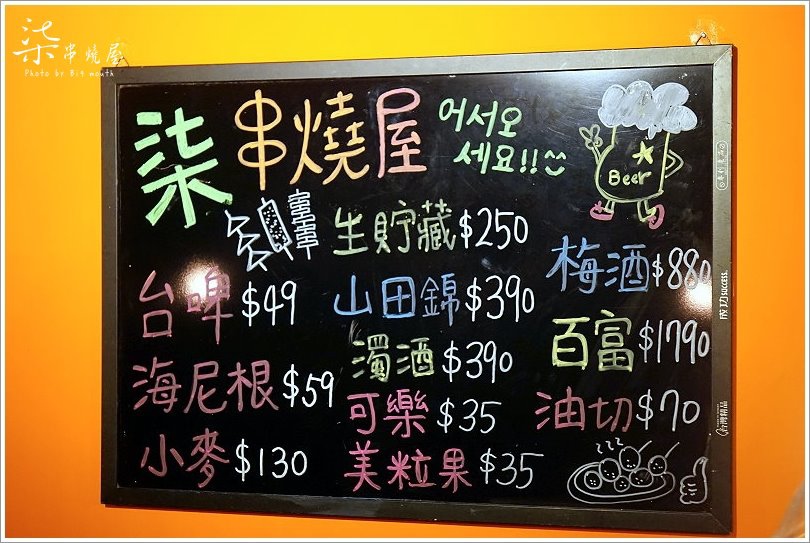 柒串燒屋
Photo by Big mouth
柒 串燒屋
어서오
세요!!
Beer
生貯藏$250
梅酒$880
台啤$49
山田錦$390
百富$1790
濁酒$390
海尼根$59
可樂$35
油切$70
小麥$130
美粒果$35
成功 success.
台灣精品